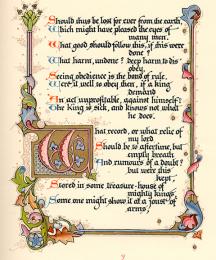 Should thus be lost for ever from the earth,
Which might have pleased the eyes of
many men.
What good should follow this, if this were
done?
What harm, undone? deep harm to dis
obey,
Seeing obedience is the bond of rule.
Were it well to obey then, if a king
demand
An act unprofitable, against himself?
The King is sick, and knows not what
he does.
What record, or what relic of
my lord
Should be to aftertime, but
empty breath
And rumours of a doubt?
but were this
kept,
Stored in some treasure-house of
mighty kings,
Some one might show it at a joust of
arms,